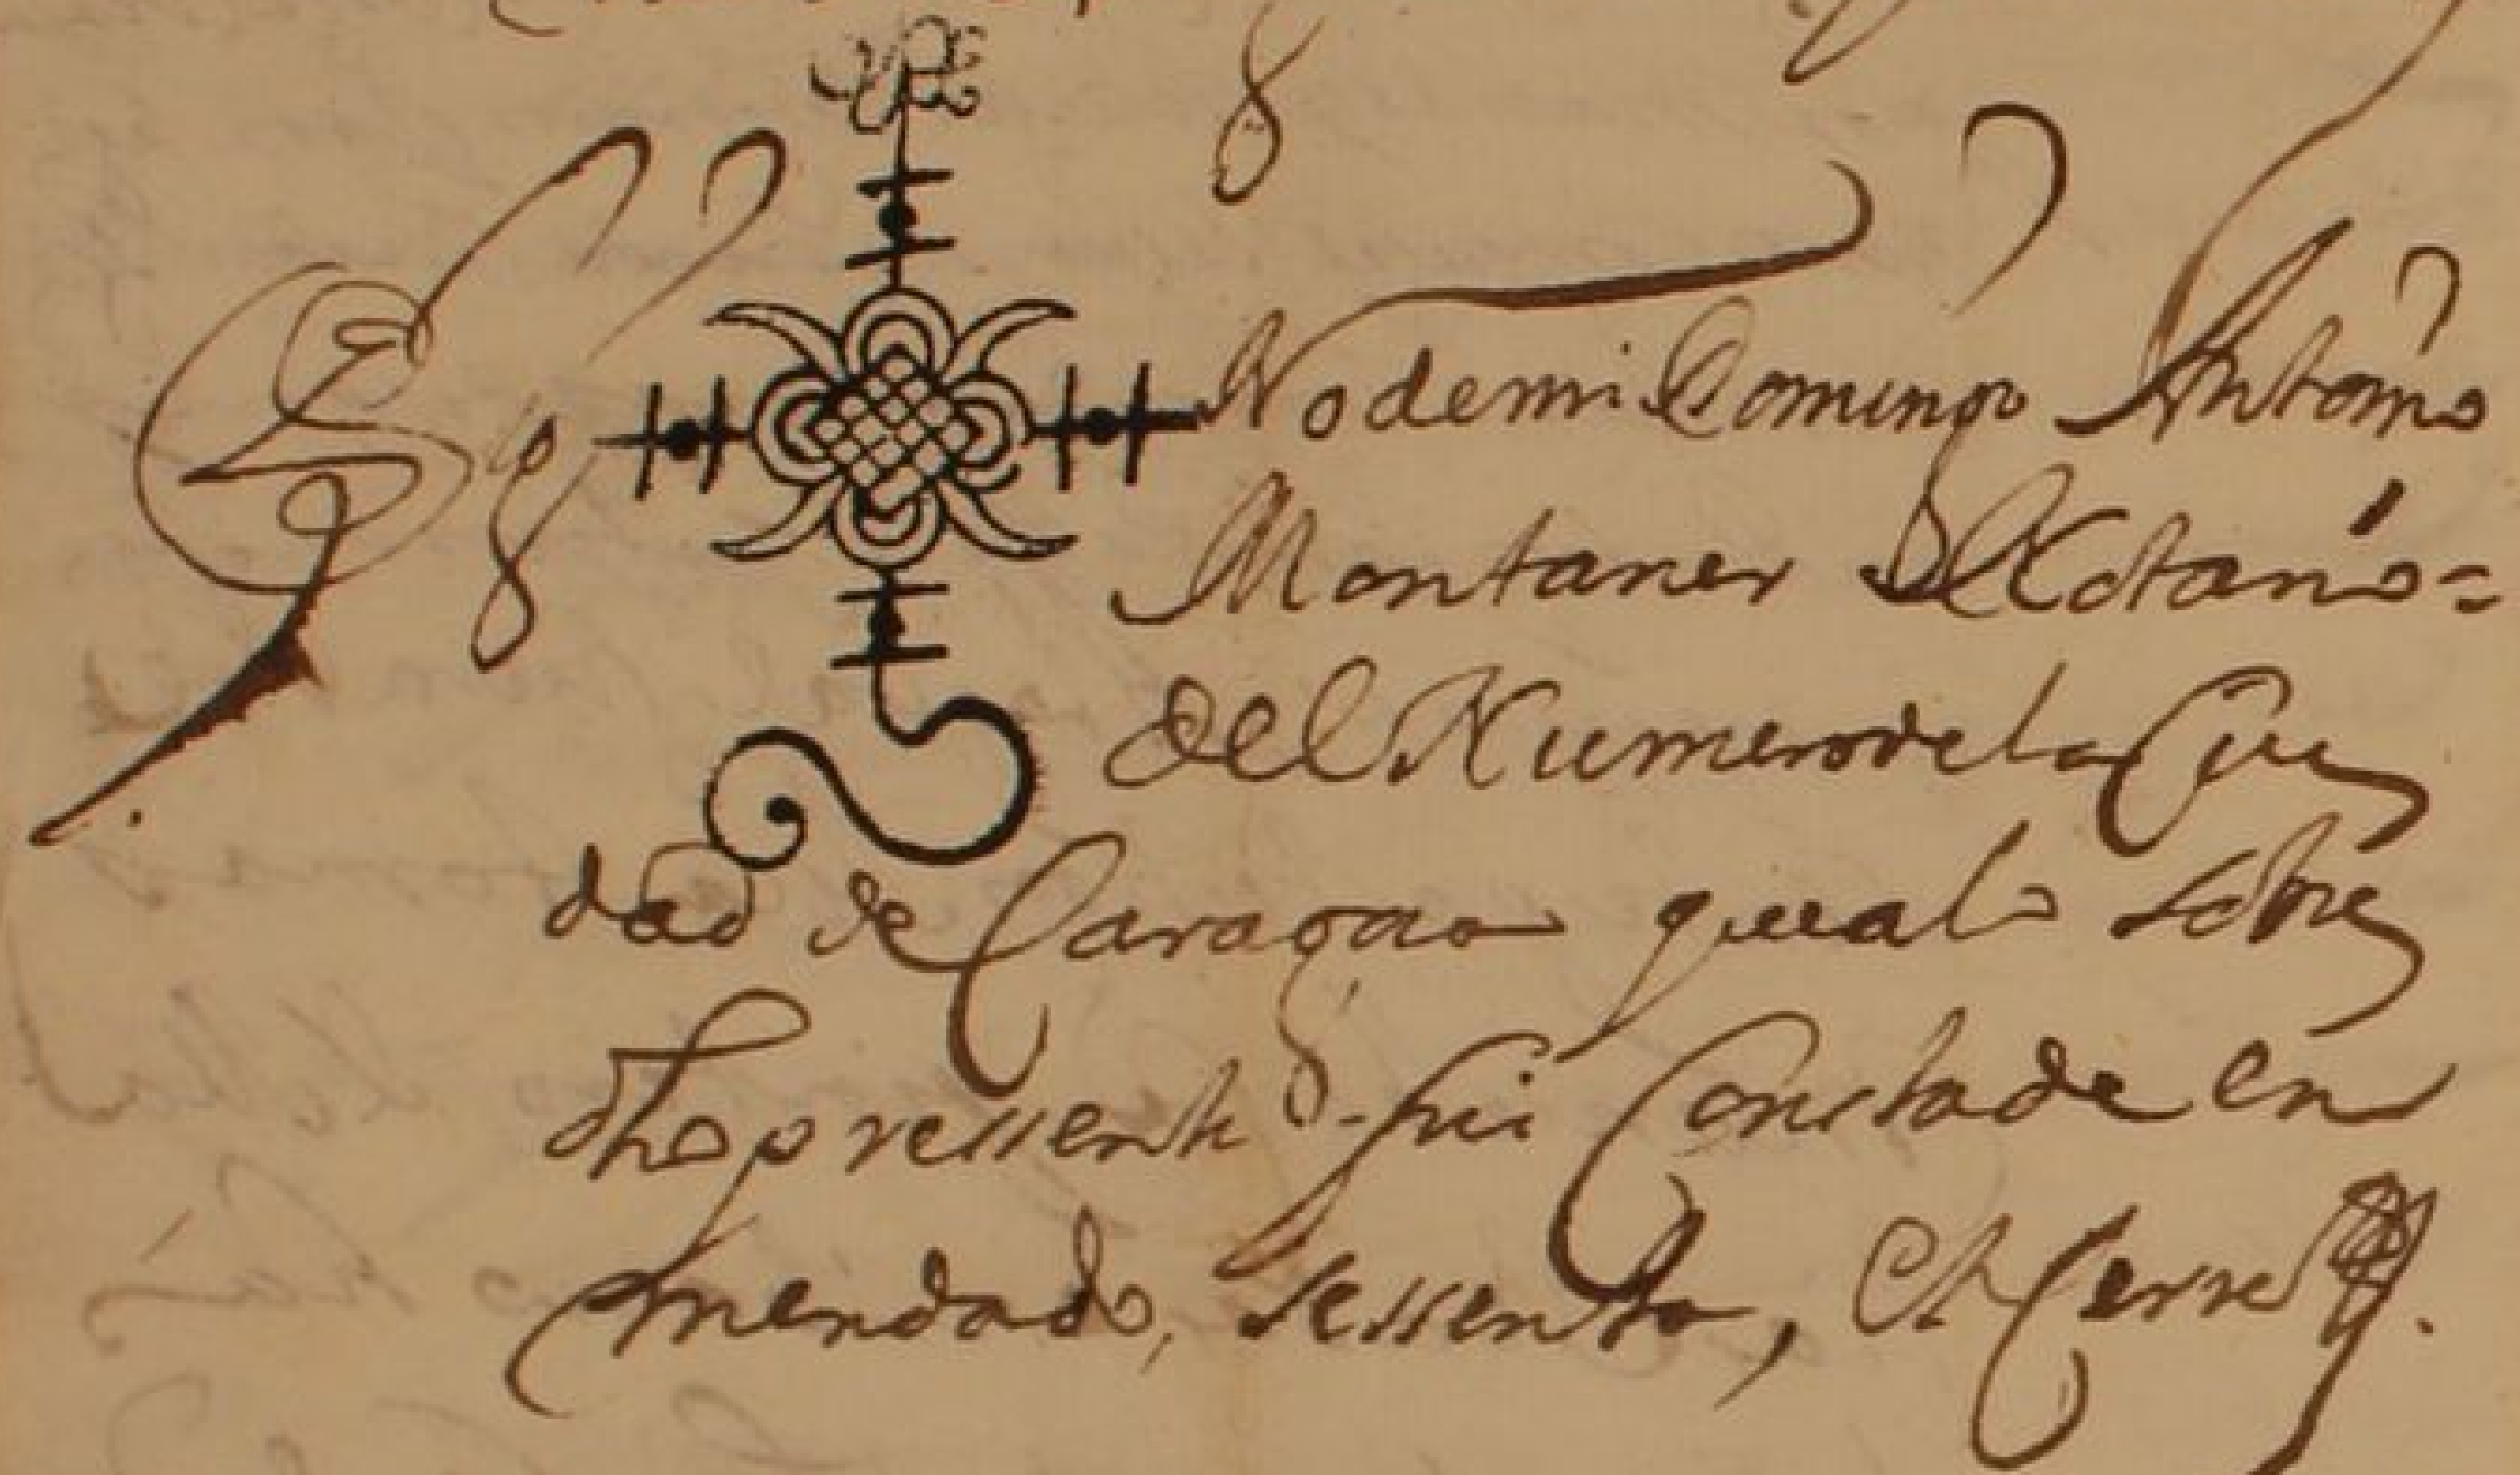 Sig No de mi Domingo Antonio
Montaner Notario
del Numero de la Ciu
dad de Caragoza que a lo sobre
dho pressente fui Consta de en
mendado, sessenta, Et Cerre